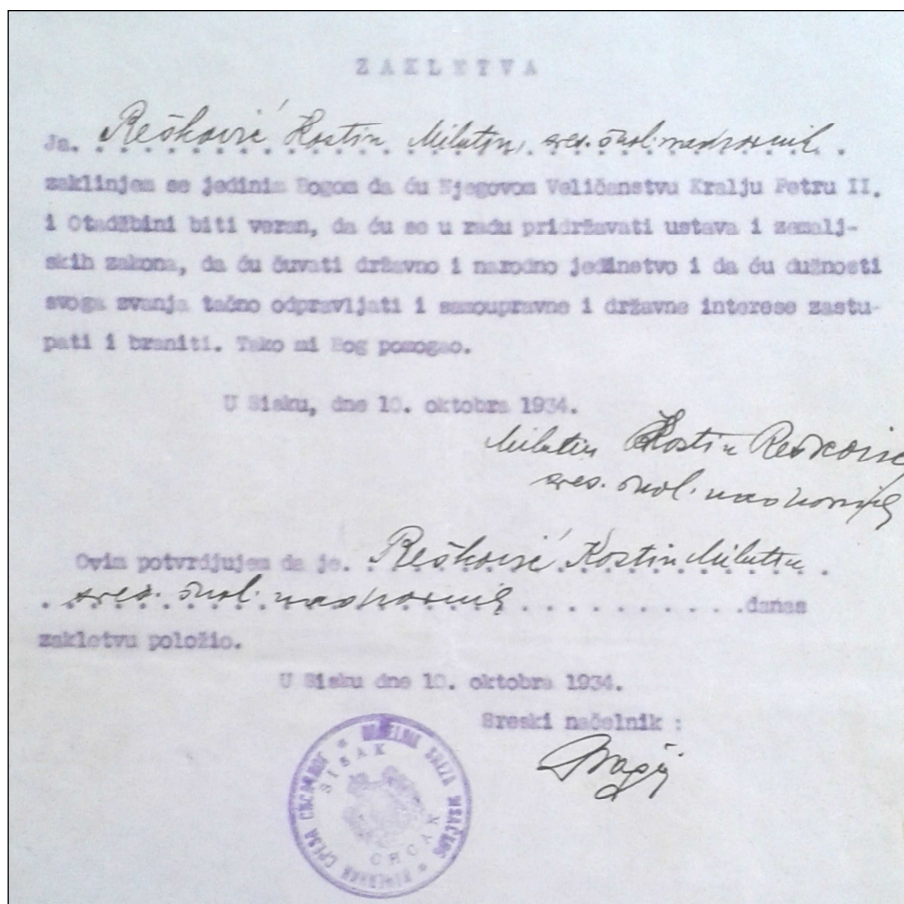 ZAKLETVA
Ja. Rešković Kostin Milutin, sres. škol. nadzornik
zaklinjem se jedinim Bogom da ću Njegovom Veličanstvu Kralju Petru II.
i Otadžbini biti veran, da ću se u radu pridržavati ustava i zemalj-
skih zakona, da ću čuvati državno i narodno jedinstvo i da ću dužnosti
svoga zvanja tačno odpravljati i samoupravne i državne interese zastu-
pati i braniti. Tako mi Bog pomogao.
U Sisku, dne 10. oktobra 1934.
Milutin Kostin Rešković
sres. škol. nadzornik
Ovim potvrdjujem da je. Rešković Kostin Milutin
sres. škol. nadzornik . . . . . . . . . . .danas
zakletvu položio.
U Sisku dne 10. oktobra 1934.
Sreski načelnik :
SISAK
СИСАК